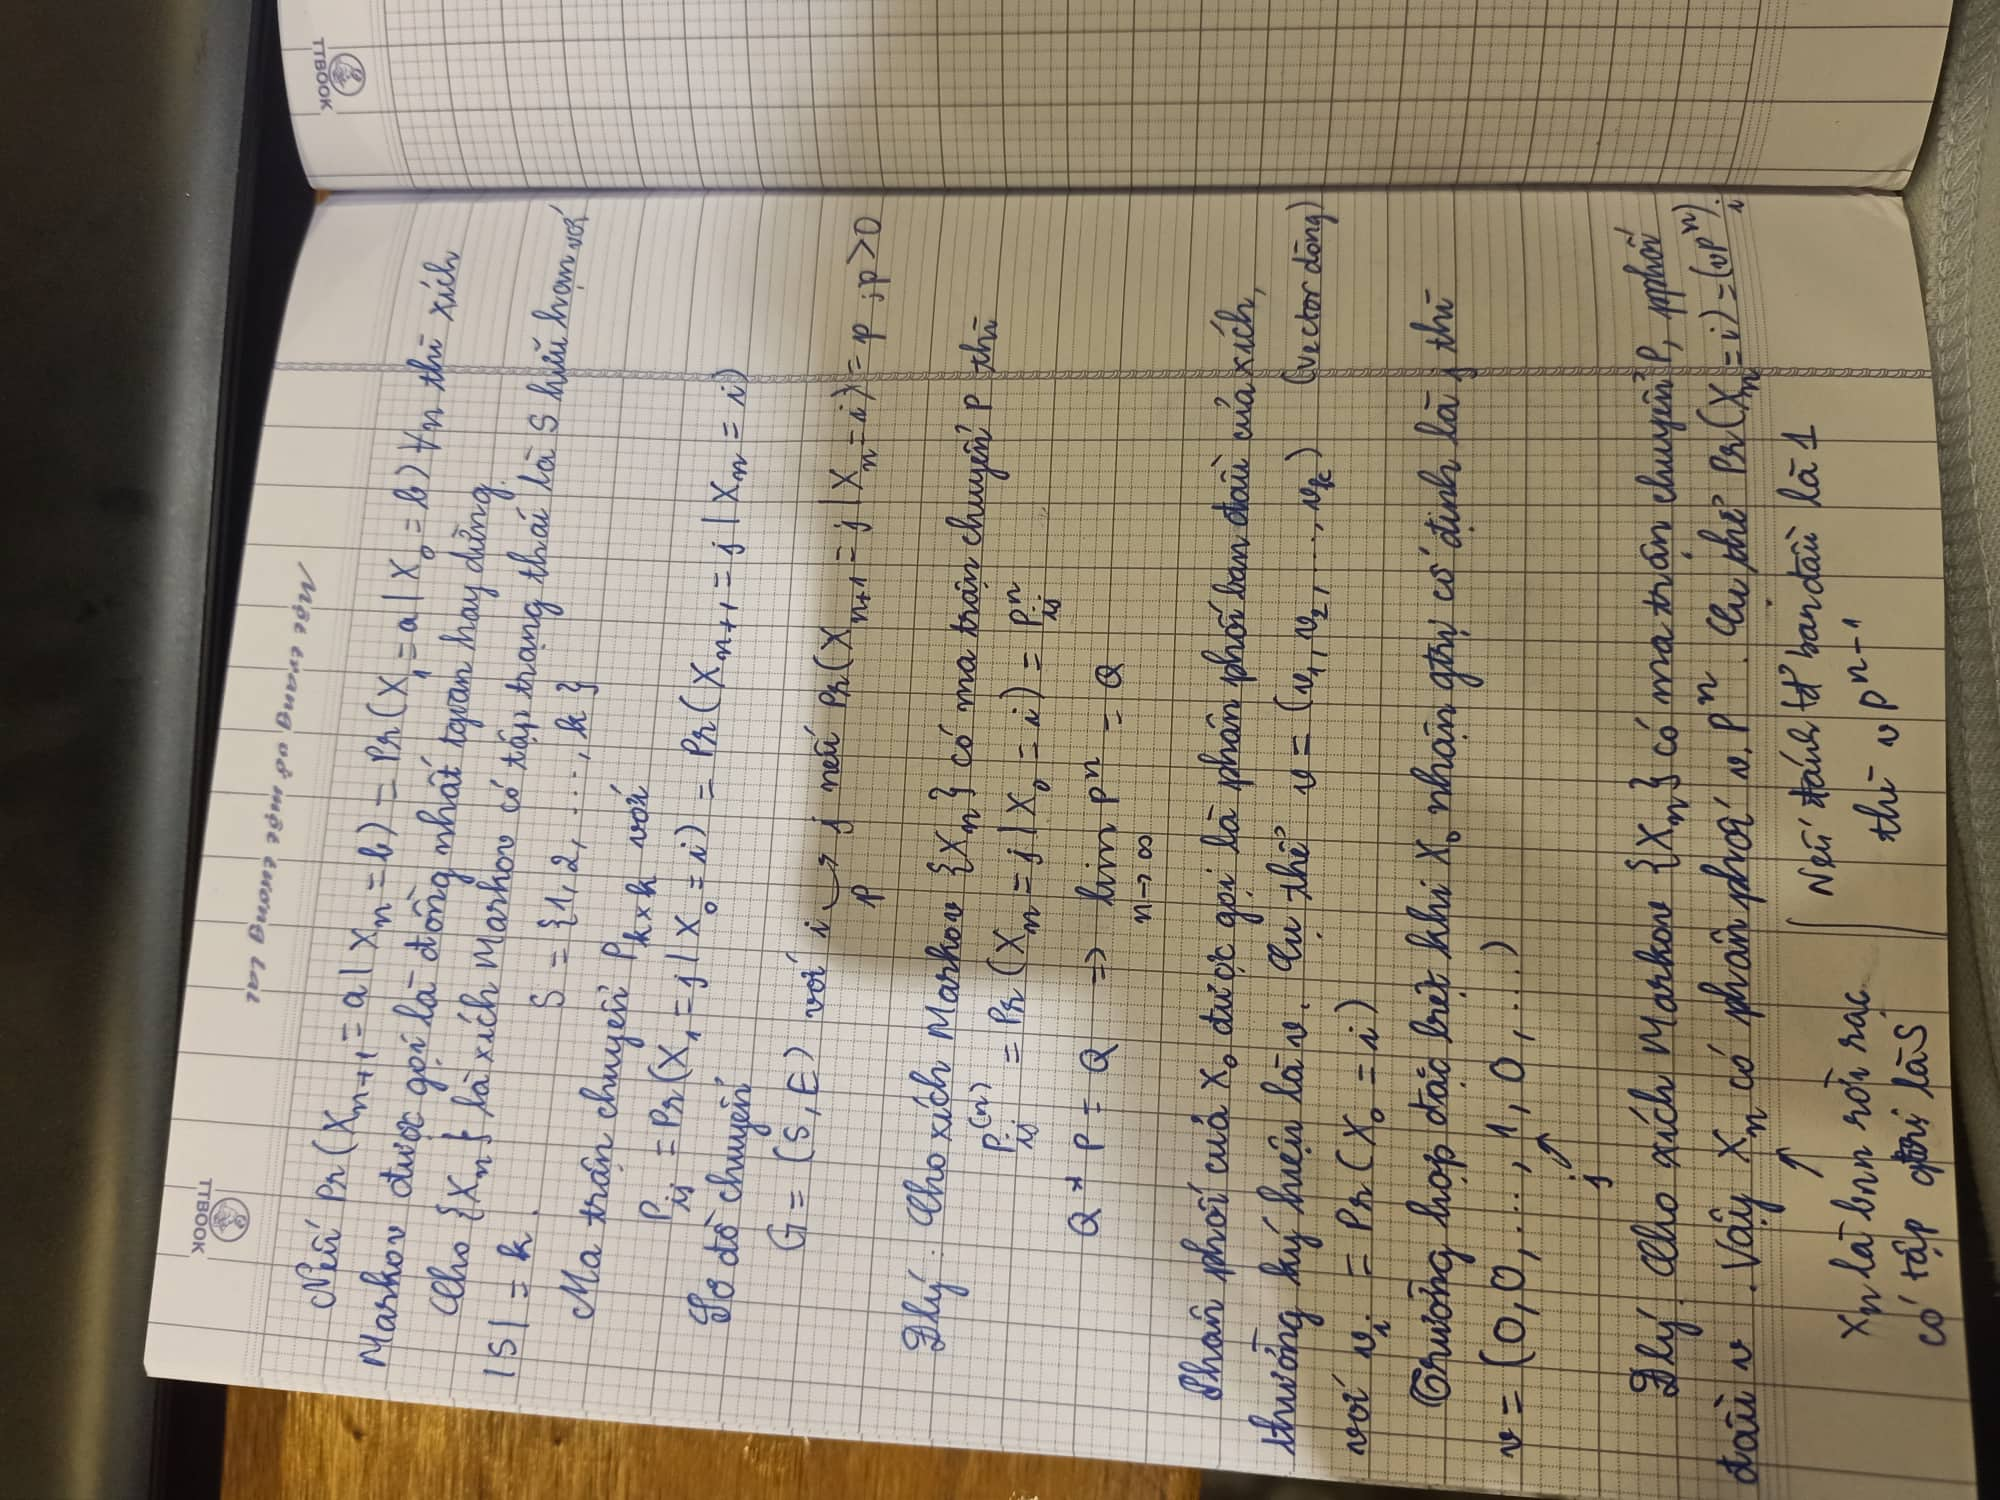 TTBOOK
TTBOOK
Một trang vở một tương lai
Nếu Pr(Xn+1 = a | Xn = b) = Pr(X1 = a | X0 = b) ∀n thì xích
Markov được gọi là đồng nhất tgian hay dừng.
Cho {Xn} là xích Markov có tập trạng thái là S hữu hạn với
|S| = k.
S = {1, 2, ..., k}
Ma trận chuyển P k×k với
Pij = Pr(X1 = j | X0 = i) = Pr(Xn+1 = j | Xn = i)
Sơ đồ chuyển
G = (S, E) với i → j nếu Pr(Xn+1 = j | Xn = i) = p ; p > 0
p
Đlý: Cho xích Markov {Xn} có ma trận chuyển P thì
Pij(n) = Pr(Xn = j | X0 = i) = Pⁿij
Q * P = Q ⇒ lim Pⁿ = Q
n→∞
Phân phối của X0 được gọi là phân phối ban đầu của xích,
thường ký hiệu là v. Cụ thể v = (v1, v2, ..., vk) (vector dòng)
với vi = Pr(X0 = i)
Trường hợp đặc biệt khi X0 nhận gtrị cố định là j thì
v = (0, 0, ..., 1, 0, ...)
j ↗
Đlý. Cho xích Markov {Xn} có ma trận chuyển P, pphối
đầu v. Vậy Xn có phân phối v.Pⁿ. Cụ thể Pr(Xn = i) = (vPⁿ)i.
↑
Xn là bnn rời rạc
có tập gtrị là S
Nếu đánh tđ ban đầu là 1
thì v Pⁿ⁻¹